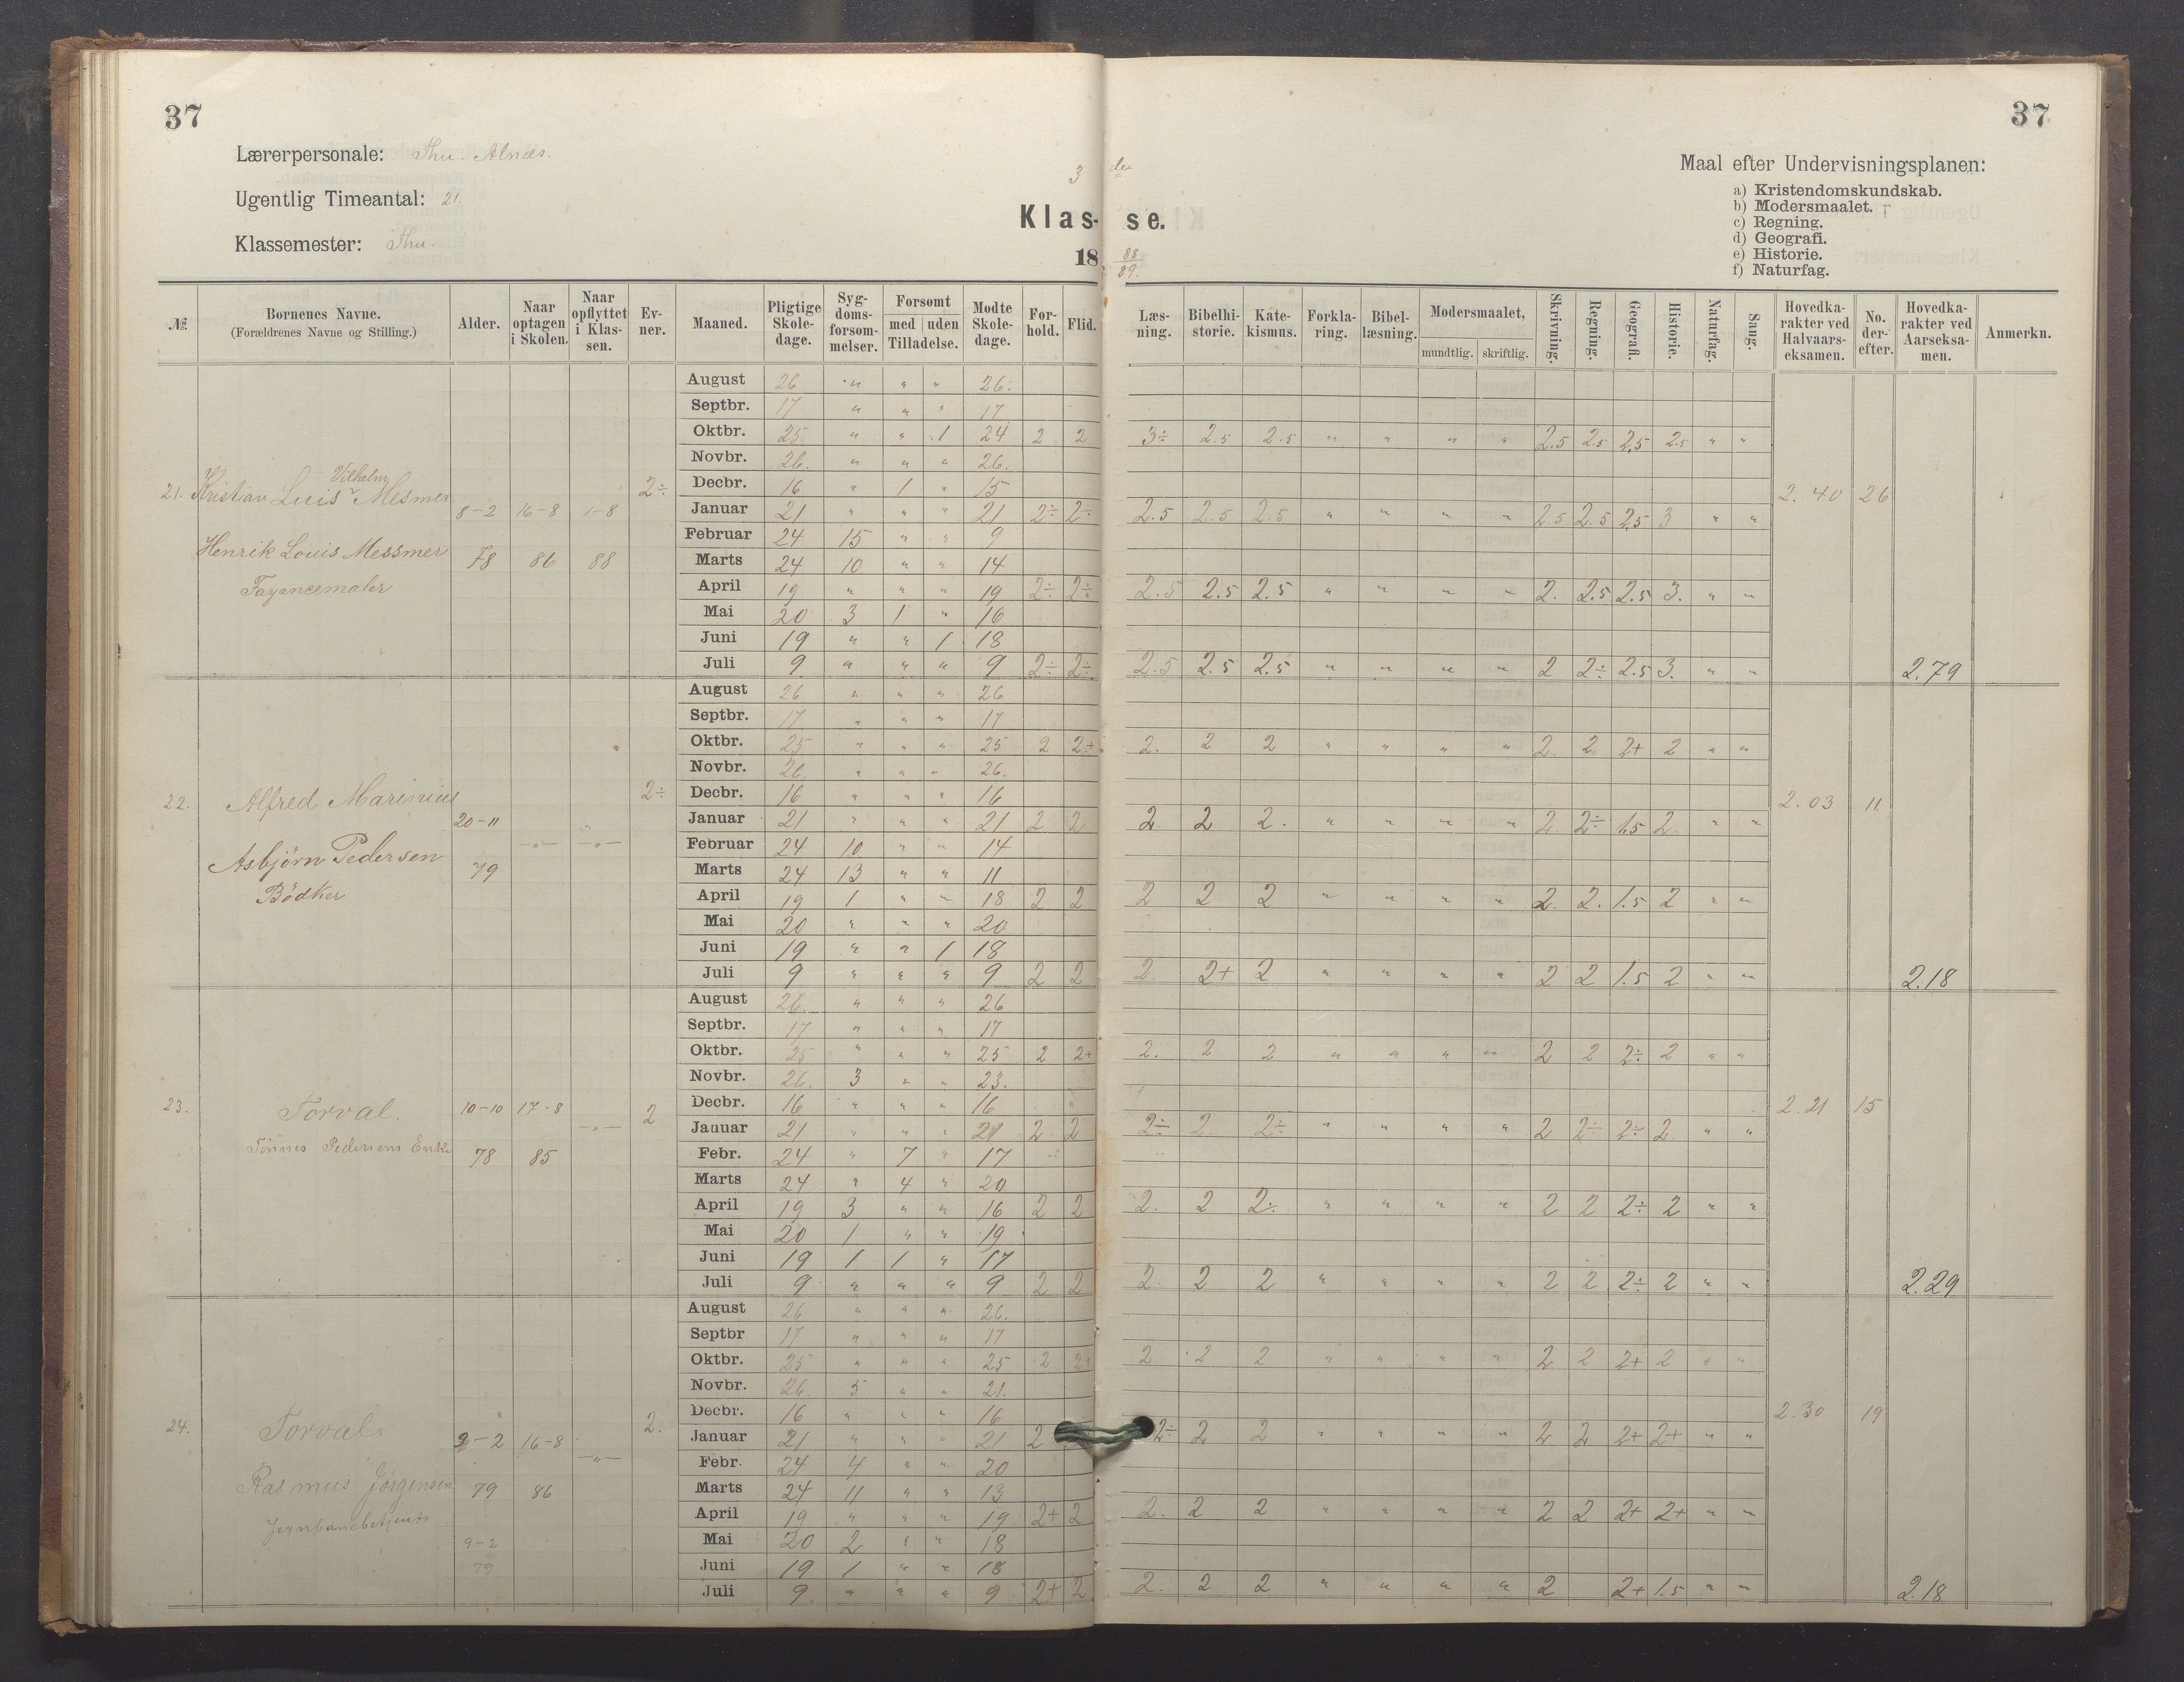 37
37
Lærerpersonale: Thu. Alnæs.
Ugentlig Timeantal: 21.
Klassemester: Thu.
3 die
Klas- se.
18 88/89.
Maal efter Undervisningsplanen:
a) Kristendomskundskab.
b) Modersmaalet.
c) Regning.
d) Geografi.
e) Historie.
f) Naturfag.
№ Børnenes Navne. (Forældrenes Navne og Stilling.) Alder. Naar optagen i Skolen. Naar opflyttet i Klassen. Evner. Maaned. Pligtige Skoledage. Sygdomsforsømmelser. Forsømt med uden Tilladelse. Mødte Skoledage. Forhold. Flid. Læsning. Bibelhistorie. Katekismus. Forklaring. Bibellæsning. Modersmaalet, mundtlig. skriftlig. Skrivning. Regning. Geografi. Historie. Naturfag. Sang. Hovedkarakter ved Halvaarseksamen. No. derefter. Hovedkarakter ved Aarseksamen. Anmerkn.
21. Kristian Luis Vilhelm Mesmer. 8-2 78 16-8 86 1-8 88 2÷ 2.40 26
Henrik Louis Messmer
Fayancemaler
August 26 " " " 26.
Septbr. 17 " " " 17
Oktbr. 25 " " 1 24 2 2 3÷ 2.5 2.5 " " " " 2.5 2.5 2.5 2.5 " "
Novbr. 26. " " " 26.
Decbr. 16 " 1 " 15
Januar 21 " " " 21 2÷ 2÷ 2.5 2.5 2.5 " " " " 2.5 2.5 2.5 3 " "
Februar 24 15 " " 9
Marts 24 10 " " 14
April 19 " " " 19 2÷ 2÷ 2.5 2.5 2.5 " " " " 2. 2.5 2.5 3. " "
Mai 20 3 1 " 16
Juni 19 " " 1 18
Juli 9 " " " 9 2÷ 2÷ 2.5 2.5 2.5 " " " " 2 2÷ 2.5 3. " " 2.79
22. Alfred Marinius 20-11 79 -"- -"- 2÷ 2.03 11
Asbjörn Pedersen
Bödker
August 26 " " " 26
Septbr. 17 " " " 17
Oktbr. 25 " " " 25 2 2+ 2. 2 2 " " " " 2. 2 2+ 2 " "
Novbr. 26. " " " 26.
Decbr. 16 " " " 16
Januar 21 " " " 21 2 2 2. 2 2. " " " " 2. 2÷ 1.5 2. " "
Februar 24 10 " " 14
Marts 24 13 " " 11
April 19 1 " " 18 2 2 2 2 2 " " " " 2. 2. 1.5 2 " "
Mai 20 " " " 20
Juni 19 " " 1 18
Juli 9 " " " 9 2 2 2. 2+ 2 " " " " 2 2 1.5 2 " " 2.18
23. Torval. 10-10 78 17-8 85 -"- 2 2.21 15
Tönnes Pedersens Enke
August 26. " " " 26
Septbr. 17 " " " 17
Oktbr. 25 " " " 25 2 2+ 2. 2 2 " " " " 2 2 2÷ 2 " "
Novbr. 26. 3 " " 23.
Decbr. 16 " " " 16
Januar 21 " " " 21 2 2 2÷ 2. 2÷ " " " " 2 2÷ 2÷ 2. " "
Febr. 24 " 7 " 17
Marts 24 " 4 " 20
April 19 3 " " 16 2 2 2. 2 2÷ " " " " 2 2 2÷ 2 " "
Mai 20 1 " " 19
Juni 19 1 1 " 17
Juli 9 " " " 9 2 2 2. 2 2 " " " " 2 2 2÷ 2 " " 2.29
24. Torval. 9-2 79 16-8 86 -"- 2. 2.30 19
Rasmus Jörgensen
Jernbanebetjent
9-2
79
August 26 " " " 26.
Septbr 17 " " " 17
Oktbr. 25 " " " 25 2 2+ 2 2 2 " " " " 2 2 2+ 2 " "
Novbr. 26. 5 " " 21.
Decbr. 16 " " " 16
Januar 21 " " " 21 2 2÷ 2 2 " " " " 2 2 2+ 2+ " "
Febr. 24 4 " " 20
Marts 24 11 " " 13
April 19 " " " 19 2+ 2 2. 2 2 " " " " 2 2 2+ 2+ " "
Mai 20 2 " " 18
Juni 19 1 " " 18
Juli 9. " " " 9 2+ 2 2. 2 2 " " " " 2 2+ 1.5 " " 2.18